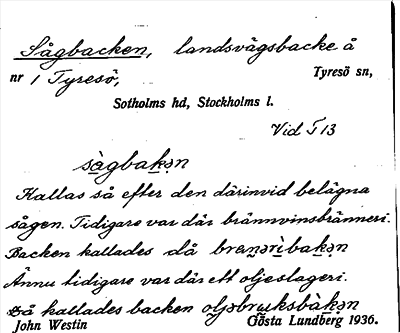 Sågbacken, landsvägsbacke å
nr 1 Tyresö, Tyresö sn,
Sotholms hd, Stockholms l.
Vid T 13
sàgbakən
Kallas så efter den därinvid belägna
sågen. Tidigare var där brännvinsbränneri.
Backen kallades då brenərìbakən
Ännu tidigare var där ett oljeslageri.
Då kallades backen oljəbruksbàkən
John Westin Gösta Lundberg 1936.